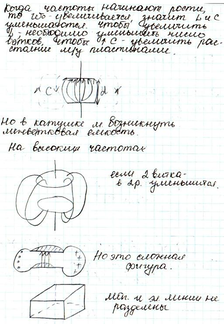 Когда частоты начинают рости,
то ω₀ - увеличивается, значит L и C
уменьшаются чтобы уменьшить
L - необходимо уменьшить число
витков, чтобы ↑ C - увеличить рас-
стояние м/у пластинами.
C
Но в катушке м возникнуть
межвитковая емкость.
На высоких частотах
если 2 витка-
в 2р. уменьшится.
Но это сложная
фигура.
и линии не
разделены